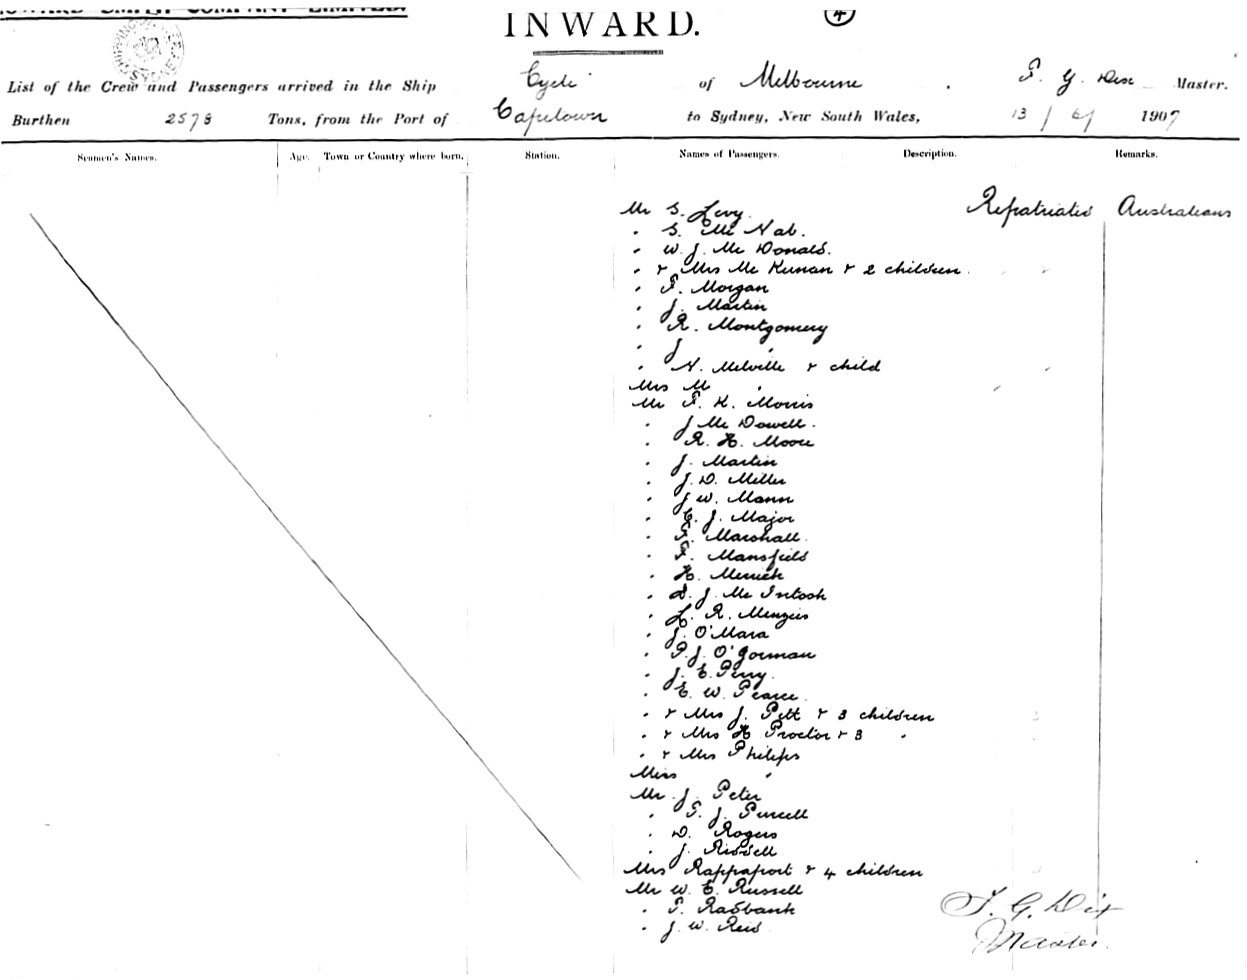 HOWARD SMITH COMPANY LIMITED.
INWARD.
4
SHIPPING SYDNEY
List of the Crew and Passengers arrived in the Ship Cycle of Melbourne . T. G. Dix Master.
Burthen 2578 Tons, from the Port of Capetown to Sydney, New South Wales, 13 / 6 / 1907
Seamen's Names. Age. Town or Country where born. Station. Names of Passengers. Description. Remarks.
Mr S. Levy. Repatriated Australians
" S. Mc Nab.
" W. J. Mc Donald.
" & Mrs Mc Kunan & 2 children.
" T. Morgan
" J. Martin
" R. Montgomery
" J "
" N. Melville & child
Mrs M "
Mr T. K. Morris
" J Mc Dowell.
" R. H. Moore
" J. Martin
" J. D. Miller
" J W. Mann
" C. J. Major
" F. Marshall.
" F. Mansfield
" H. Merrick
" D. J. Mc Intosh
" L. R. Menzies
" J. O'Mara
" P. J. O'Gorman
" J. E. Perry.
" E. W. Pearce.
" & Mrs J. Pitt & 3 children
" & Mrs H Proctor & 3 "
" & Mrs Philips
Miss "
Mr J. Peter
" T. J. Purcell
" D. Rogers
" J. Rissell
Mrs Rappaport & 4 children
Mr W. E. Russell
" T. Radbank
" J. W. Reid
T. G. Dix
Master.